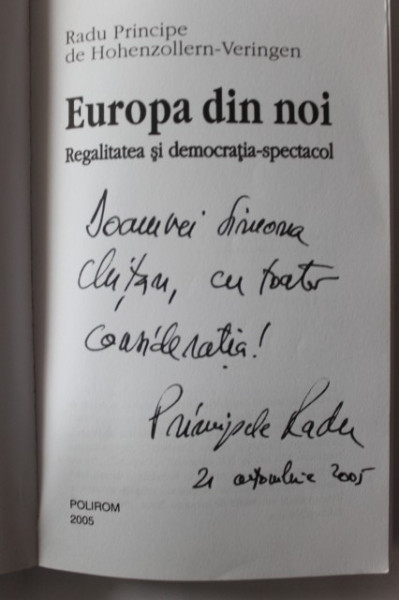 Radu Principe
de Hohenzollern-Veringen
Europa din noi
Regalitatea și democrația-spectacol
Doamnei Simona
Chițan, cu toată
considerația!
Principele Radu
21 octombrie 2005
POLIROM
2005